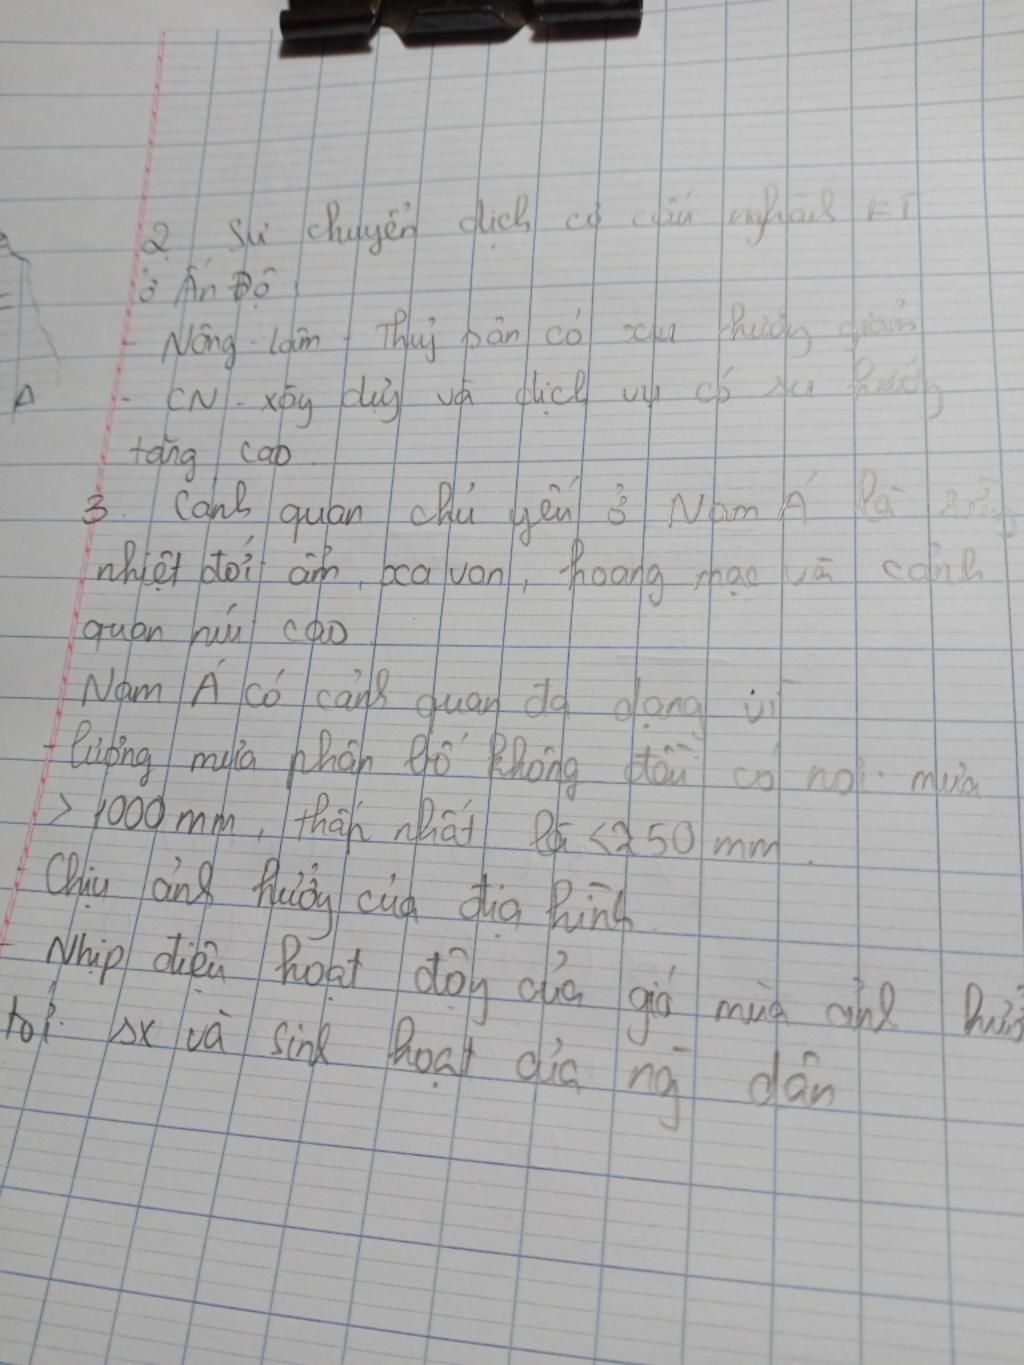 2. Sự chuyển dịch cơ cấu ngành KT
ở Ấn Độ
- Nông - lâm - Thuỷ sản có xu hướng giảm
- CN - xây dựng và dịch vụ có xu hướng
tăng cao
3. Cảnh quan chủ yếu ở Nam Á là rừng
nhiệt đới ẩm, xa van, hoang mạc và cảnh
quan núi cao
Nam Á có cảnh quan đa dạng vì
- lượng mưa phân bố không đều có nơi mưa
> 1000 mm, thấp nhất là < 250 mm.
Chịu ảnh hưởng của địa hình
- Nhịp điệu hoạt động của gió mùa ảnh hưở
tới sx và sinh hoạt của ng dân
A